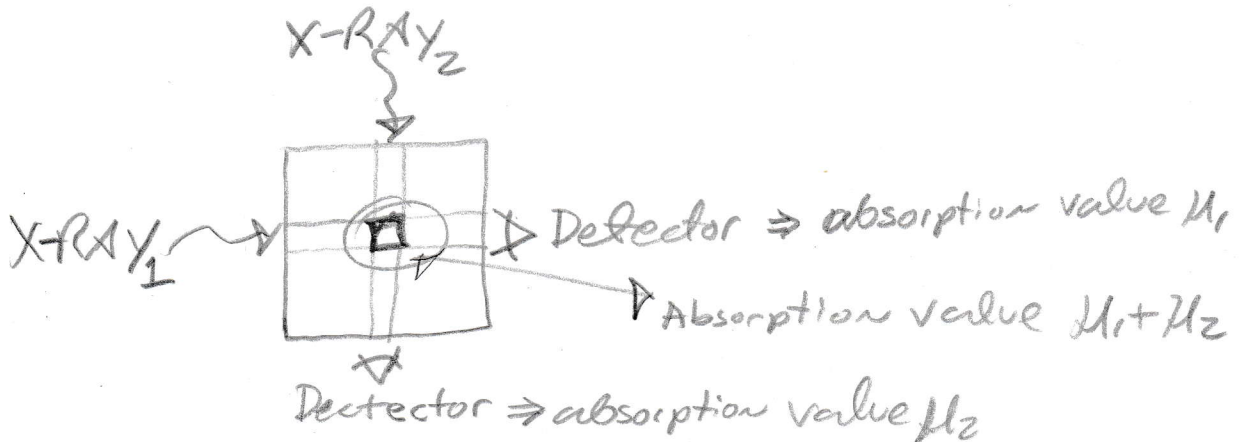 X-RAY₂
X-RAY₁
Detector ⇒ absorption value μ₁
Absorption value μ₁+μ₂
Dectector ⇒ absorption value μ₂